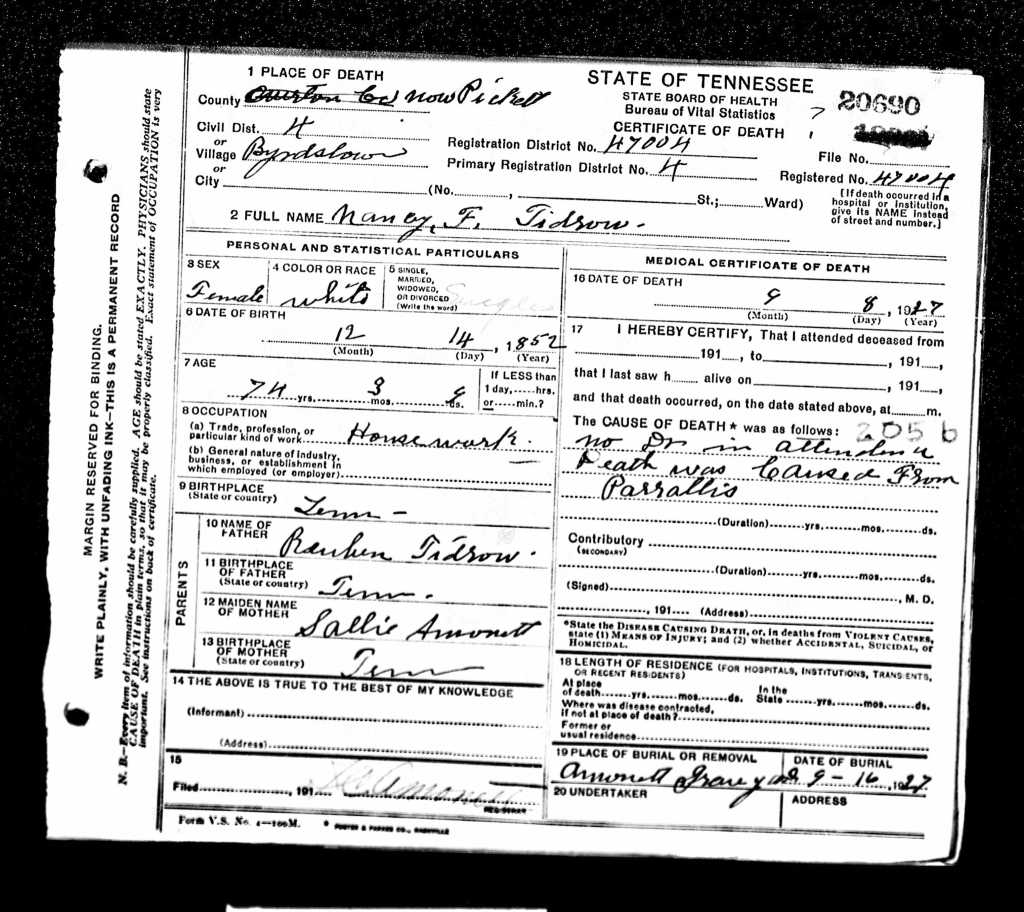 MARGIN RESERVED FOR BINDING.
WRITE PLAINLY, WITH UNFADING INK—THIS IS A PERMANENT RECORD
N. B.—Every item of information should be carefully supplied. AGE should be stated EXACTLY. PHYSICIANS should state
CAUSE OF DEATH in plain terms, so that it may be properly classified. Exact statement of OCCUPATION is very
important. See instructions on back of certificate.
1 PLACE OF DEATH
County Overton Co now Pickett
Civil Dist. 4
or
Village Byrdstown
or
City (No. , St.; Ward)
STATE OF TENNESSEE
STATE BOARD OF HEALTH
Bureau of Vital Statistics
CERTIFICATE OF DEATH
20690
Registration District No. 47004
File No.
Primary Registration District No. 4
Registered No. 47004
[If death occurred in a
hospital or institution,
give its NAME instead
of street and number.]
2 FULL NAME Nancy, F. Tidrow.
PERSONAL AND STATISTICAL PARTICULARS
3 SEX
Female
4 COLOR OR RACE
white
5 SINGLE,
MARRIED,
WIDOWED,
OR DIVORCED
(Write the word)
6 DATE OF BIRTH
12 14, 1852
(Month) (Day) (Year)
7 AGE
74 yrs. 3 mos. 9 ds.
If LESS than
1 day,.....hrs.
or.....min.?
8 OCCUPATION
(a) Trade, profession, or
particular kind of work House work.
(b) General nature of industry,
business, or establishment in
which employed (or employer) —
9 BIRTHPLACE
(State or country) Tenn -
PARENTS
10 NAME OF
FATHER Reuben Tidrow.
11 BIRTHPLACE
OF FATHER
(State or country) Tenn.
12 MAIDEN NAME
OF MOTHER Sallie Amonett
13 BIRTHPLACE
OF MOTHER
(State or country) Tenn
14 THE ABOVE IS TRUE TO THE BEST OF MY KNOWLEDGE
(Informant)
(Address)
15
Filed , 191 Amonett
REGISTRAR
Form V.S. No. 1—100M.
FOSTER & PARKES CO., NASHVILLE
MEDICAL CERTIFICATE OF DEATH
16 DATE OF DEATH
9 8, 1927
(Month) (Day) (Year)
17 I HEREBY CERTIFY, That I attended deceased from
191 , to , 191 ,
that I last saw h alive on , 191 ,
and that death occurred, on the date stated above, at m.
The CAUSE OF DEATH * was as follows: 205 b
no Dr in attendence
Death was Caused From
Parrallis
(Duration) yrs. mos. ds.
Contributory
(SECONDARY)
(Duration) yrs. mos. ds.
(Signed) , M. D.
, 191 (Address)
*State the DISEASE CAUSING DEATH, or, in deaths from VIOLENT CAUSES,
state (1) MEANS OF INJURY; and (2) whether ACCIDENTAL, SUICIDAL, or
HOMICIDAL.
18 LENGTH OF RESIDENCE (FOR HOSPITALS, INSTITUTIONS, TRANSIENTS,
OR RECENT RESIDENTS)
At place
of death yrs. mos. ds.
In the
State yrs. mos. ds.
Where was disease contracted,
if not at place of death?
Former or
usual residence
19 PLACE OF BURIAL OR REMOVAL
Amonett Grave yard
DATE OF BURIAL
9 - 16, 1927
20 UNDERTAKER
ADDRESS